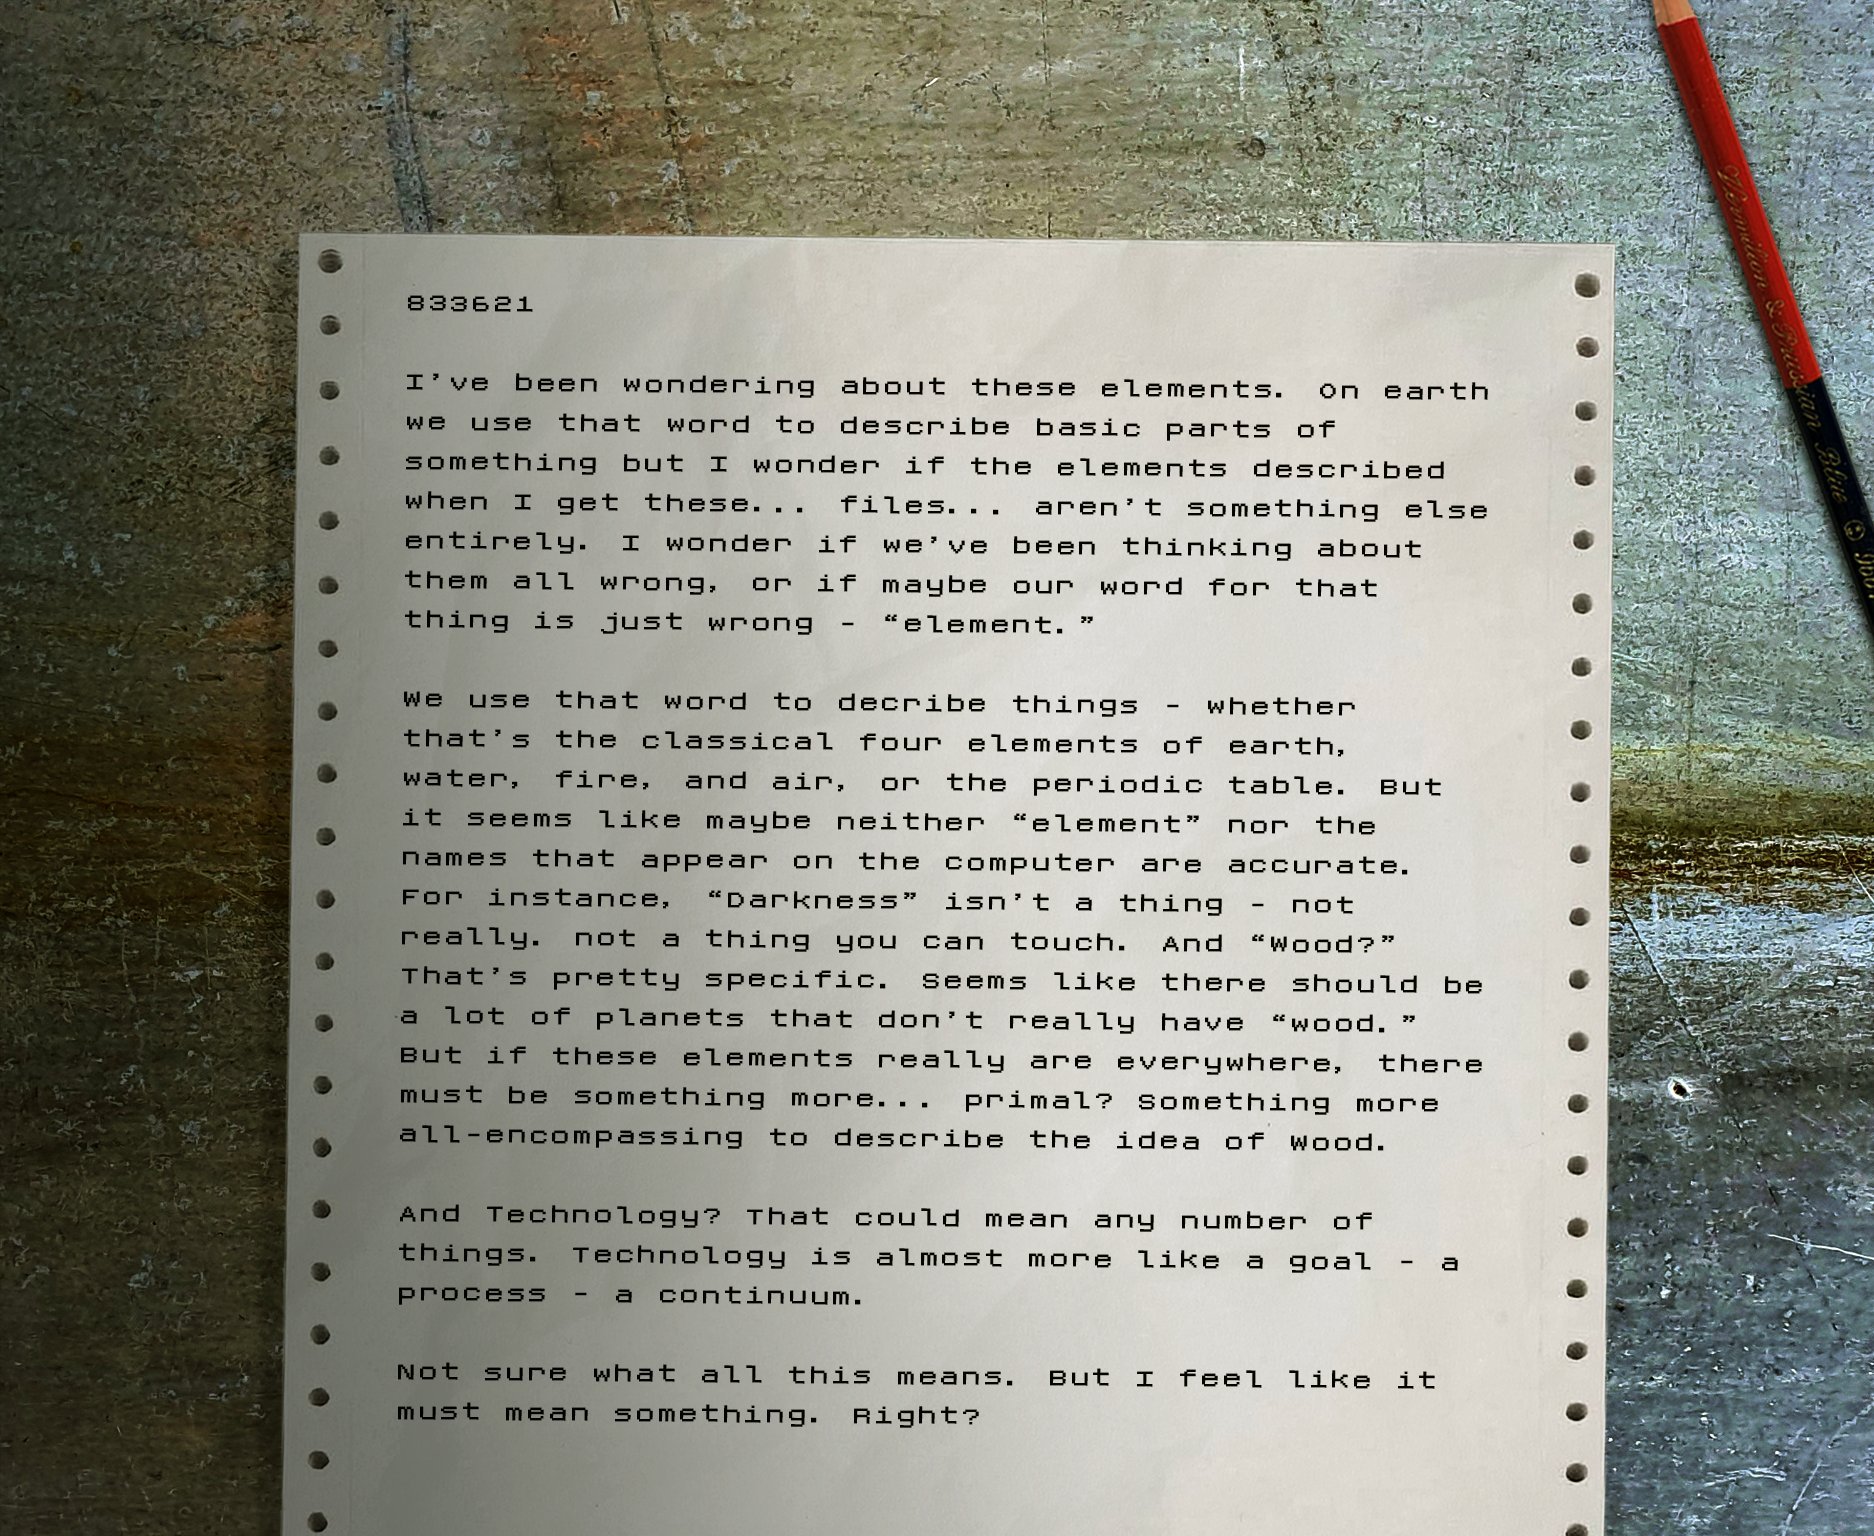 833621
I've been wondering about these elements. On earth
we use that word to describe basic parts of
something but I wonder if the elements described
when I get these... files... aren't something else
entirely. I wonder if we've been thinking about
them all wrong, or if maybe our word for that
thing is just wrong - “element.”
We use that word to decribe things - whether
that's the classical four elements of earth,
water, fire, and air, or the periodic table. But
it seems like maybe neither “element” nor the
names that appear on the computer are accurate.
For instance, “Darkness” isn't a thing - not
really. not a thing you can touch. And “Wood?”
That's pretty specific. Seems like there should be
a lot of planets that don't really have “wood.”
But if these elements really are everywhere, there
must be something more... primal? Something more
all-encompassing to describe the idea of Wood.
And Technology? That could mean any number of
things. Technology is almost more like a goal - a
process - a continuum.
Not sure what all this means. But I feel like it
must mean something. Right?
Vermilion & Prussian Blue